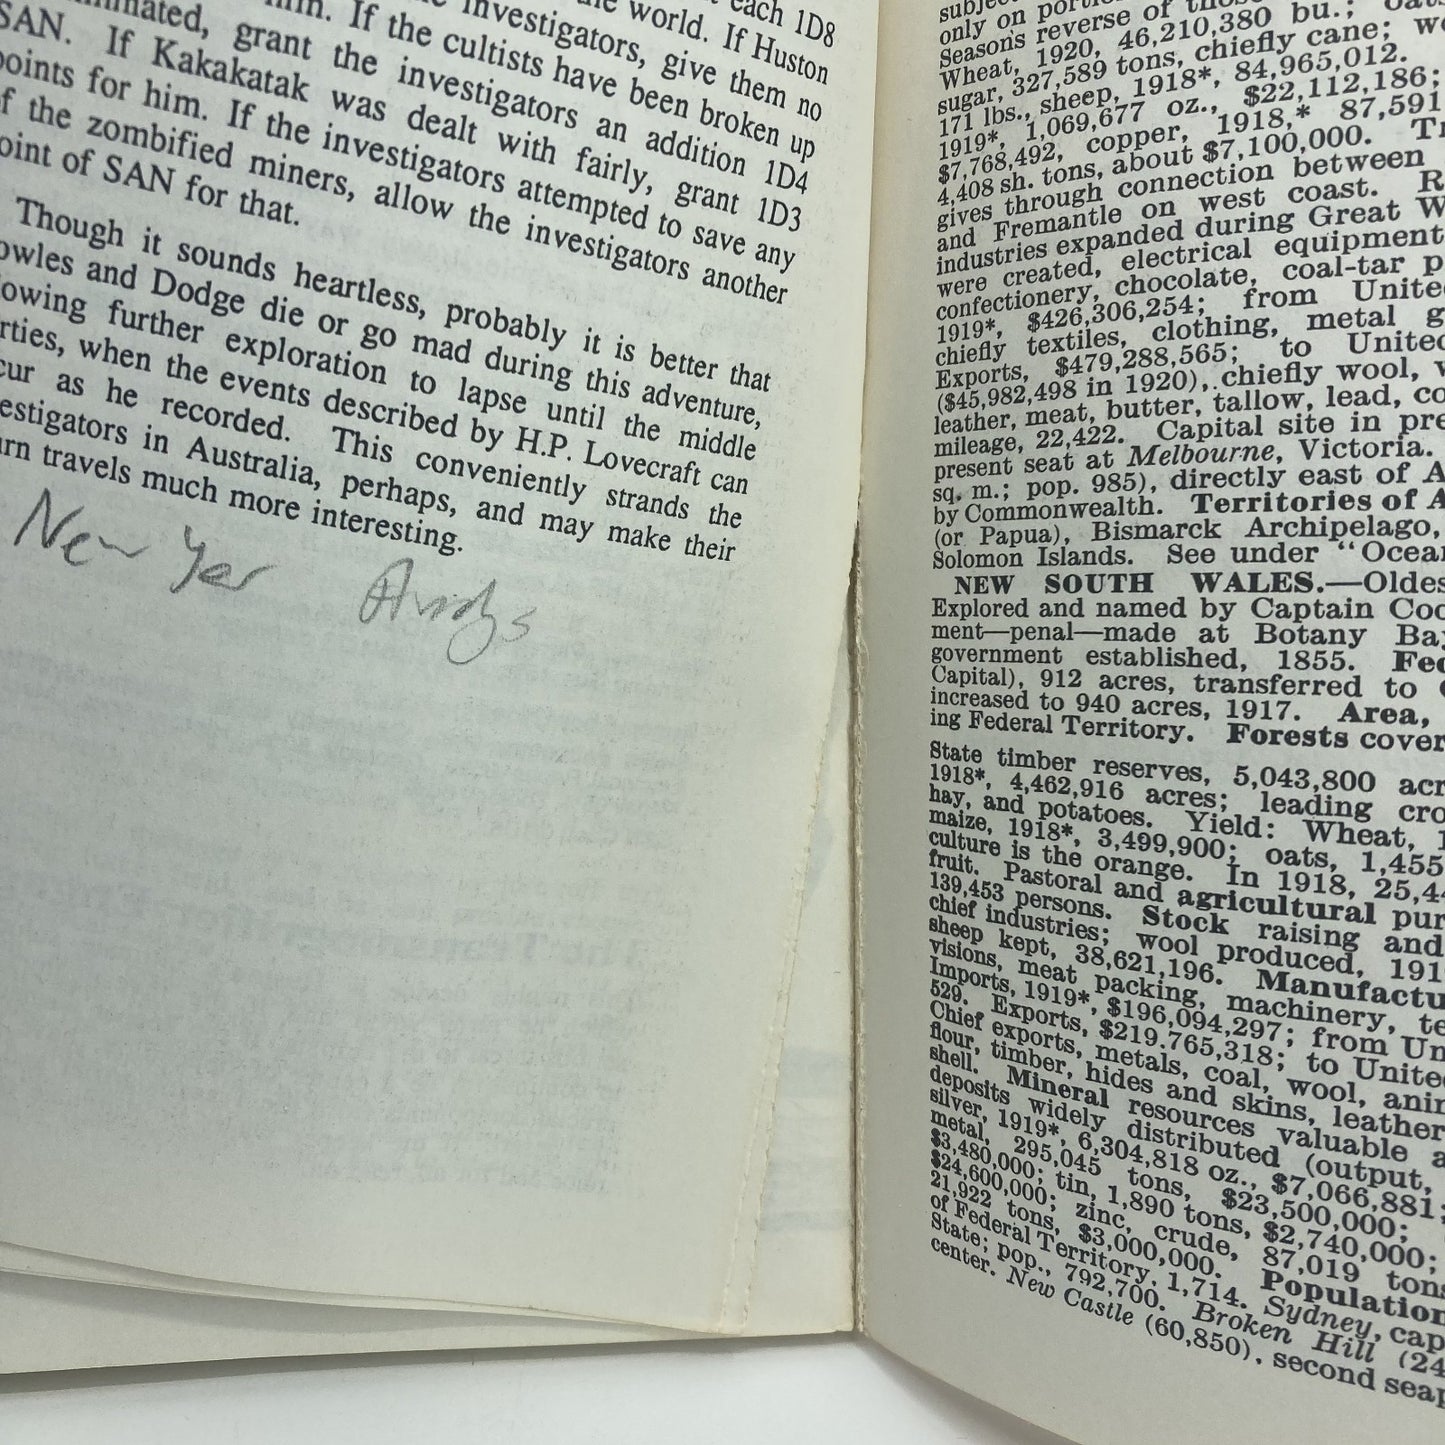 each 1D8
the world. If Huston
investigators, give them no
him. If the cultists have been broken up
grant the investigators an addition 1D4
SAN. If Kakakatak was dealt with fairly, grant 1D3
points for him. If the investigators attempted to save any
of the zombified miners, allow the investigators another
point of SAN for that.
Though it sounds heartless, probably it is better that
owles and Dodge die or go mad during this adventure,
owing further exploration to lapse until the middle
rties, when the events described by H.P. Lovecraft can
cur as he recorded. This conveniently strands the
estigators in Australia, perhaps, and may make their
urn travels much more interesting.
New Yer Andys
only on
Seasons reverse of
Wheat, 1920, 46,210,380 bu.;
sugar, 327,589 tons, chiefly cane;
171 lbs., sheep, 1918*, 84,965,012.
1919*, 1,069,677 oz., $22,112,186;
$7,768,492, copper, 1918,* 87,591
4,408 sh. tons, about $7,100,000.
gives through connection between
and Fremantle on west coast. R
industries expanded during Great W
were created, electrical equipment
confectionery, chocolate, coal-tar p
1919*, $426,306,254; from Unite
chiefly textiles, clothing, metal g
Exports, $479,288,565; to United
($45,982,498 in 1920), chiefly wool, w
leather, meat, butter, tallow, lead, co
mileage, 22,422. Capital site in pre
present seat at Melbourne, Victoria.
sq. m.; pop. 985), directly east of A
by Commonwealth. Territories of A
(or Papua), Bismarck Archipelago,
Solomon Islands. See under "Ocean
NEW SOUTH WALES.—Oldes
Explored and named by Captain Coo
ment—penal—made at Botany Bay
government established, 1855. Fed
Capital), 912 acres, transferred to C
increased to 940 acres, 1917. Area,
ing Federal Territory. Forests cover
State timber reserves, 5,043,800 acr
1918*, 4,462,916 acres; leading cro
hay, and potatoes. Yield: Wheat, 1
maize, 1918*, 3,499,900; oats, 1,455
culture is the orange. In 1918, 25,44
fruit. Pastoral and agricultural pur
139,453 persons. Stock raising and
chief industries; wool produced, 191
sheep kept, 38,621,196. Manufactu
visions, meat packing, machinery, te
Imports, 1919*, $196,094,297; from Un
529. Exports, $219.765,318; to Unite
Chief exports, metals, coal, wool, anim
flour, timber, hides and skins, leather
shell. Mineral resources valuable a
deposits widely distributed (output,
silver, 1919*, 6,304,818 oz., $7,066,881;
metal, 295,045 tons, $23,500,000;
$3,480,000; tin, 1,890 tons, $2,740,000;
$24,600,000; zinc, crude, 87,019 tons
21,922 tons, $3,000,000. Population
of Federal Territory, 1,714. Sydney, cap
State; pop., 792,700. Broken Hill (24
center. New Castle (60,850), second seap